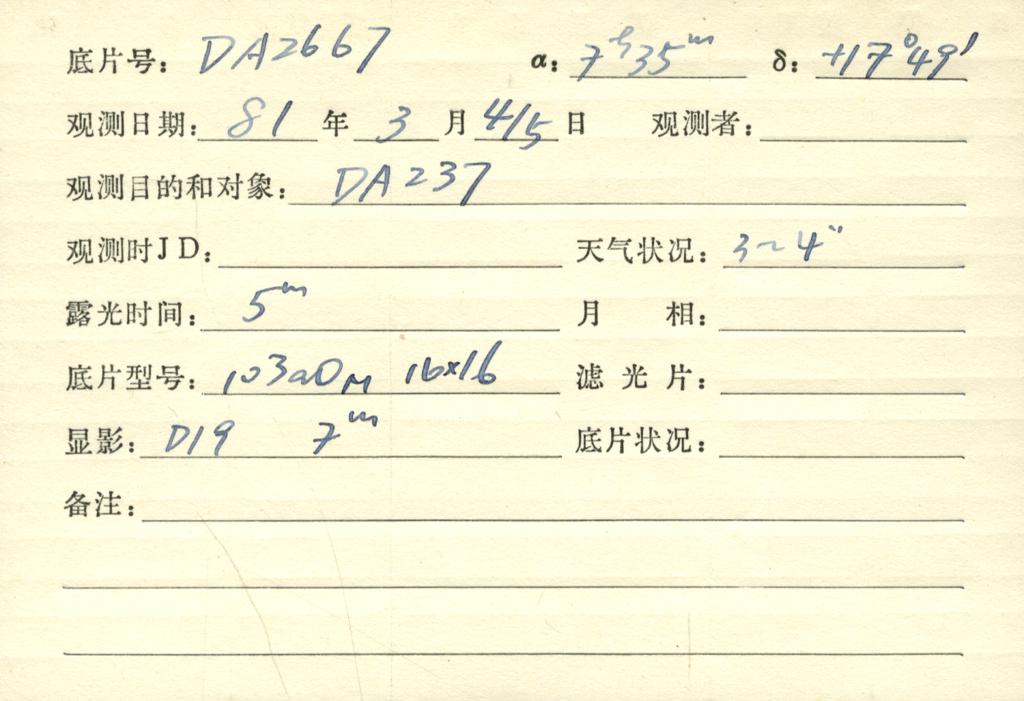 底片号: DA2667 α: 7ʰ35ᵐ δ: +17°49′
观测日期: 81 年 3 月 4/5 日 观测者:
观测目的和对象: DA237
观测时JD: 天气状况: 3~4″
露光时间: 5ᵐ 月 相:
底片型号: 103aO M 16×16 滤光片:
显影: D19 7ᵐ 底片状况:
备注: